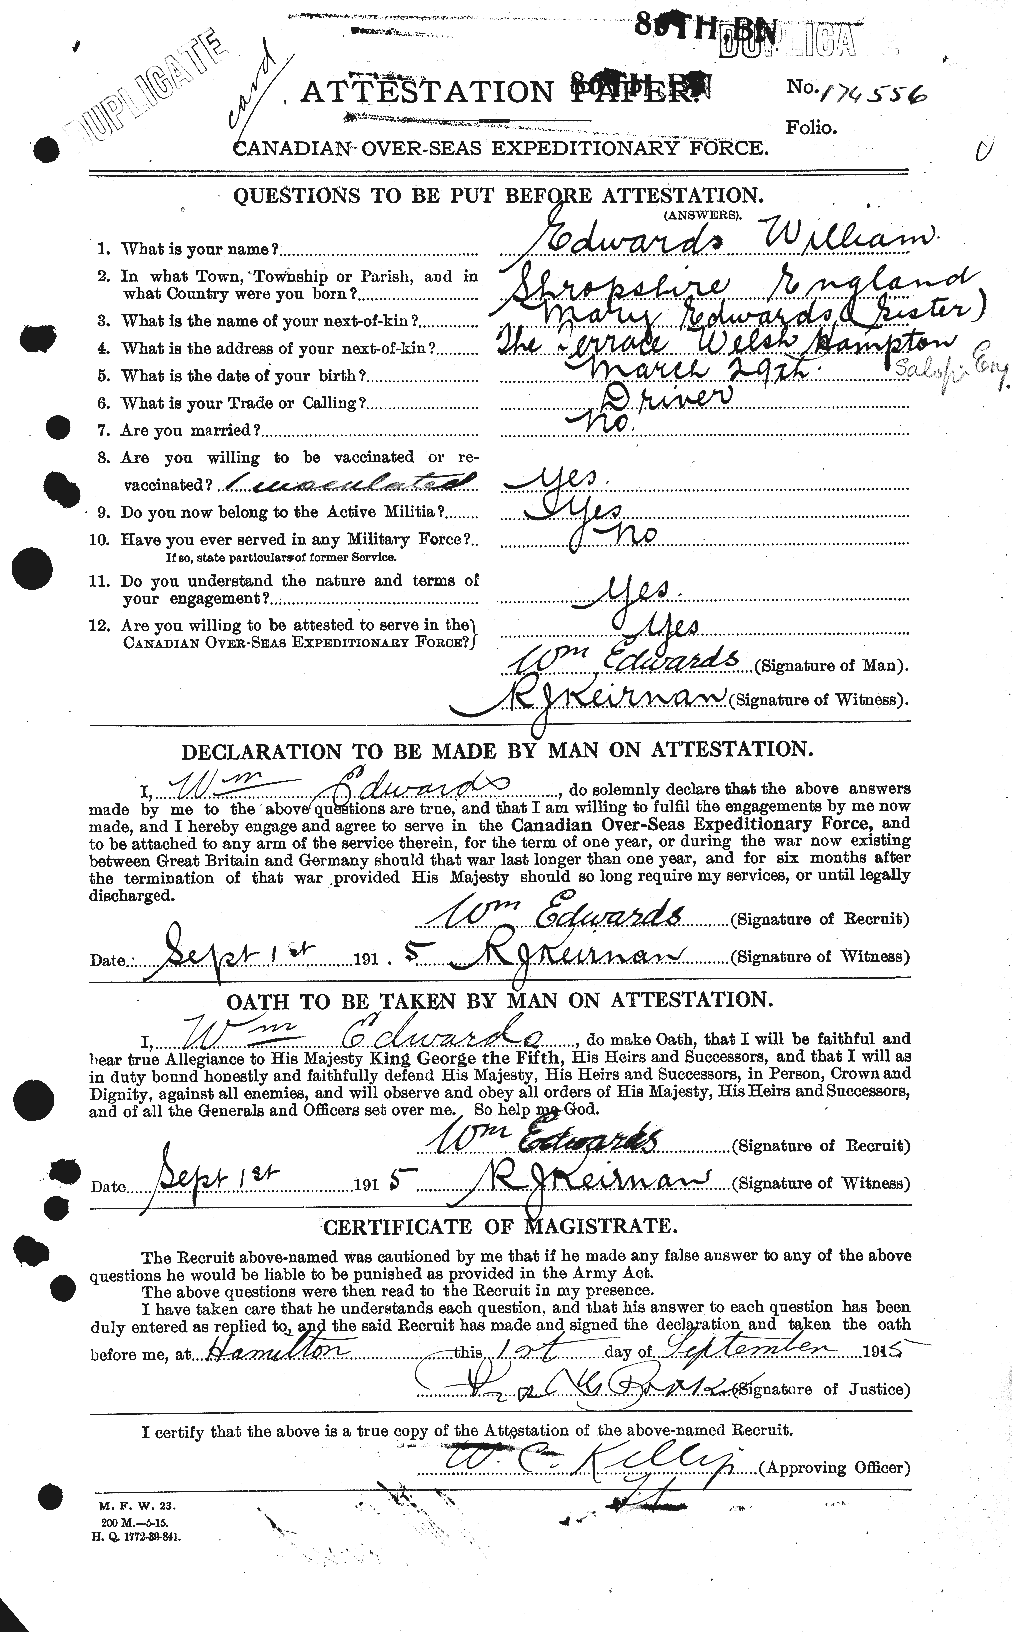 DUPLICATE
card
DUPLICA
ATTESTATION PAPER.
No. 174556
Folio.
CANADIAN OVER-SEAS EXPEDITIONARY FORCE.
QUESTIONS TO BE PUT BEFORE ATTESTATION.
(ANSWERS).
1. What is your name? Edwards William.
2. In what Town, Township or Parish, and in
what Country were you born? Shropshire England
3. What is the name of your next-of-kin? Mary Edwards (Sister)
4. What is the address of your next-of-kin? The Terrace Welsh Hampton
Eng.
5. What is the date of your birth? March 29th.
6. What is your Trade or Calling? Driver
7. Are you married? No.
8. Are you willing to be vaccinated or re-
vaccinated? / inoculated Yes.
9. Do you now belong to the Active Militia? Yes
10. Have you ever served in any Military Force? No
If so, state particulars of former Service.
11. Do you understand the nature and terms of
your engagement? Yes.
12. Are you willing to be attested to serve in the
CANADIAN OVER-SEAS EXPEDITIONARY FORCE? Yes
Wm Edwards (Signature of Man).
R J Keirnan (Signature of Witness).
DECLARATION TO BE MADE BY MAN ON ATTESTATION.
I, Wm Edwards, do solemnly declare that the above answers
made by me to the above questions are true, and that I am willing to fulfil the engagements by me now
made, and I hereby engage and agree to serve in the Canadian Over-Seas Expeditionary Force, and
to be attached to any arm of the service therein, for the term of one year, or during the war now existing
between Great Britain and Germany should that war last longer than one year, and for six months after
the termination of that war provided His Majesty should so long require my services, or until legally
discharged.
Wm Edwards (Signature of Recruit)
Date. Sept 1st 191.5 R J Keirnan (Signature of Witness)
OATH TO BE TAKEN BY MAN ON ATTESTATION.
I, Wm Edwards, do make Oath, that I will be faithful and
bear true Allegiance to His Majesty King George the Fifth, His Heirs and Successors, and that I will as
in duty bound honestly and faithfully defend His Majesty, His Heirs and Successors, in Person, Crown and
Dignity, against all enemies, and will observe and obey all orders of His Majesty, His Heirs and Successors,
and of all the Generals and Officers set over me. So help me God.
Wm Edwards (Signature of Recruit)
Date Sept 1st 1915 R J Keirnan (Signature of Witness)
CERTIFICATE OF MAGISTRATE.
The Recruit above-named was cautioned by me that if he made any false answer to any of the above
questions he would be liable to be punished as provided in the Army Act.
The above questions were then read to the Recruit in my presence.
I have taken care that he understands each question, and that his answer to each question has been
duly entered as replied to, and the said Recruit has made and signed the declaration and taken the oath
before me, at Hamilton this 1st day of September 1915
(Signature of Justice)
I certify that the above is a true copy of the Attestation of the above-named Recruit.
W. C. Killip (Approving Officer)
Lt
M. F. W. 23.
200 M.—5-15.
H. Q. 1772-39-841.